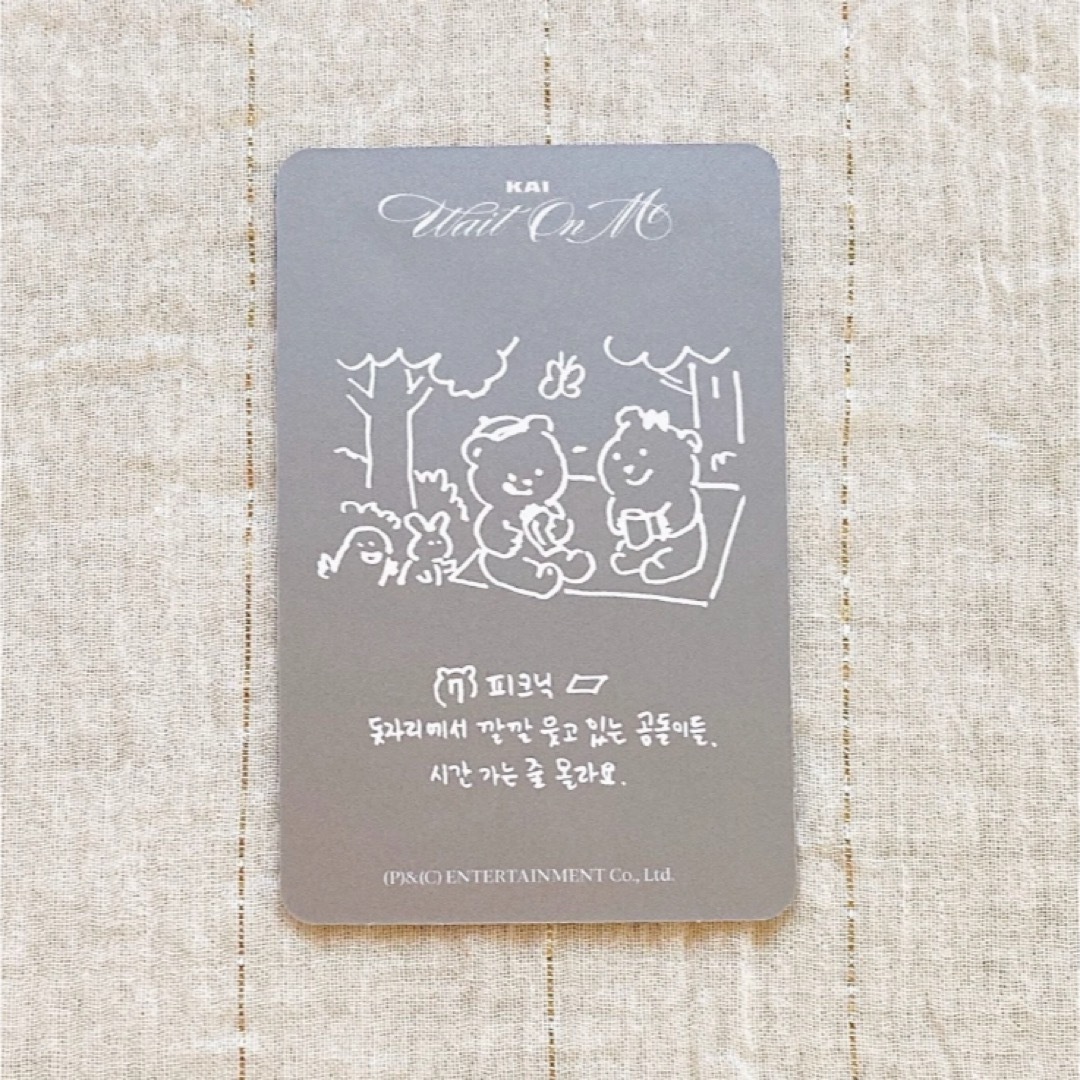 KAI
Wait On Me
(ㄲ) 피크닉
돗자리에서 깔깔 웃고 있는 곰돌이들.
시간 가는 줄 몰라요.
(P)&(C) ENTERTAINMENT Co., Ltd.